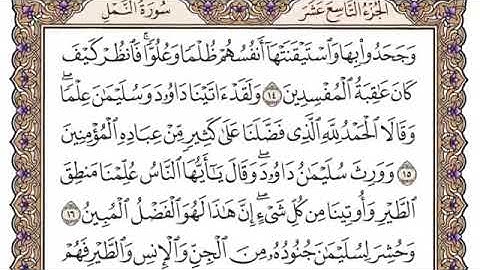 الجزء التاسع عشر سورة النمل
وَجَحَدُوا۟ بِهَا وَٱسْتَيْقَنَتْهَآ أَنفُسُهُمْ ظُلْمًا وَعُلُوًّا ۚ فَٱنظُرْ كَيْفَ
كَانَ عَٰقِبَةُ ٱلْمُفْسِدِينَ ١٤ وَلَقَدْ ءَاتَيْنَا دَاوُۥدَ وَسُلَيْمَٰنَ عِلْمًا ۖ
وَقَالَا ٱلْحَمْدُ لِلَّهِ ٱلَّذِى فَضَّلَنَا عَلَىٰ كَثِيرٍ مِّنْ عِبَادِهِ ٱلْمُؤْمِنِينَ
١٥ وَوَرِثَ سُلَيْمَٰنُ دَاوُۥدَ ۖ وَقَالَ يَٰٓأَيُّهَا ٱلنَّاسُ عُلِّمْنَا مَنطِقَ
ٱلطَّيْرِ وَأُوتِينَا مِن كُلِّ شَىْءٍ ۖ إِنَّ هَٰذَا لَهُوَ ٱلْفَضْلُ ٱلْمُبِينُ ١٦
وَحُشِرَ لِسُلَيْمَٰنَ جُنُودُهُۥ مِنَ ٱلْجِنِّ وَٱلْإِنسِ وَٱلطَّيْرِ فَهُمْ